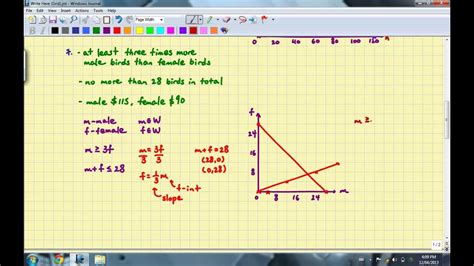 Write Here (Grid).jnt - Windows Journal
Page Width
0 20 40 60 80 100 120
7. - at least three times more
male birds than female birds
- no more than 28 birds in total
- male $115, female $90
m-male m∈W
f-female f∈W
m ≥ 3f
m+f ≤ 28
m = 3f
3 3
f = 1/3 m
slope
f-int
m+f=28
(28,0)
(0,28)
f
24
16
8
0 8 16 24 m
m ≥
1/2
4:09 PM
12/04/2013